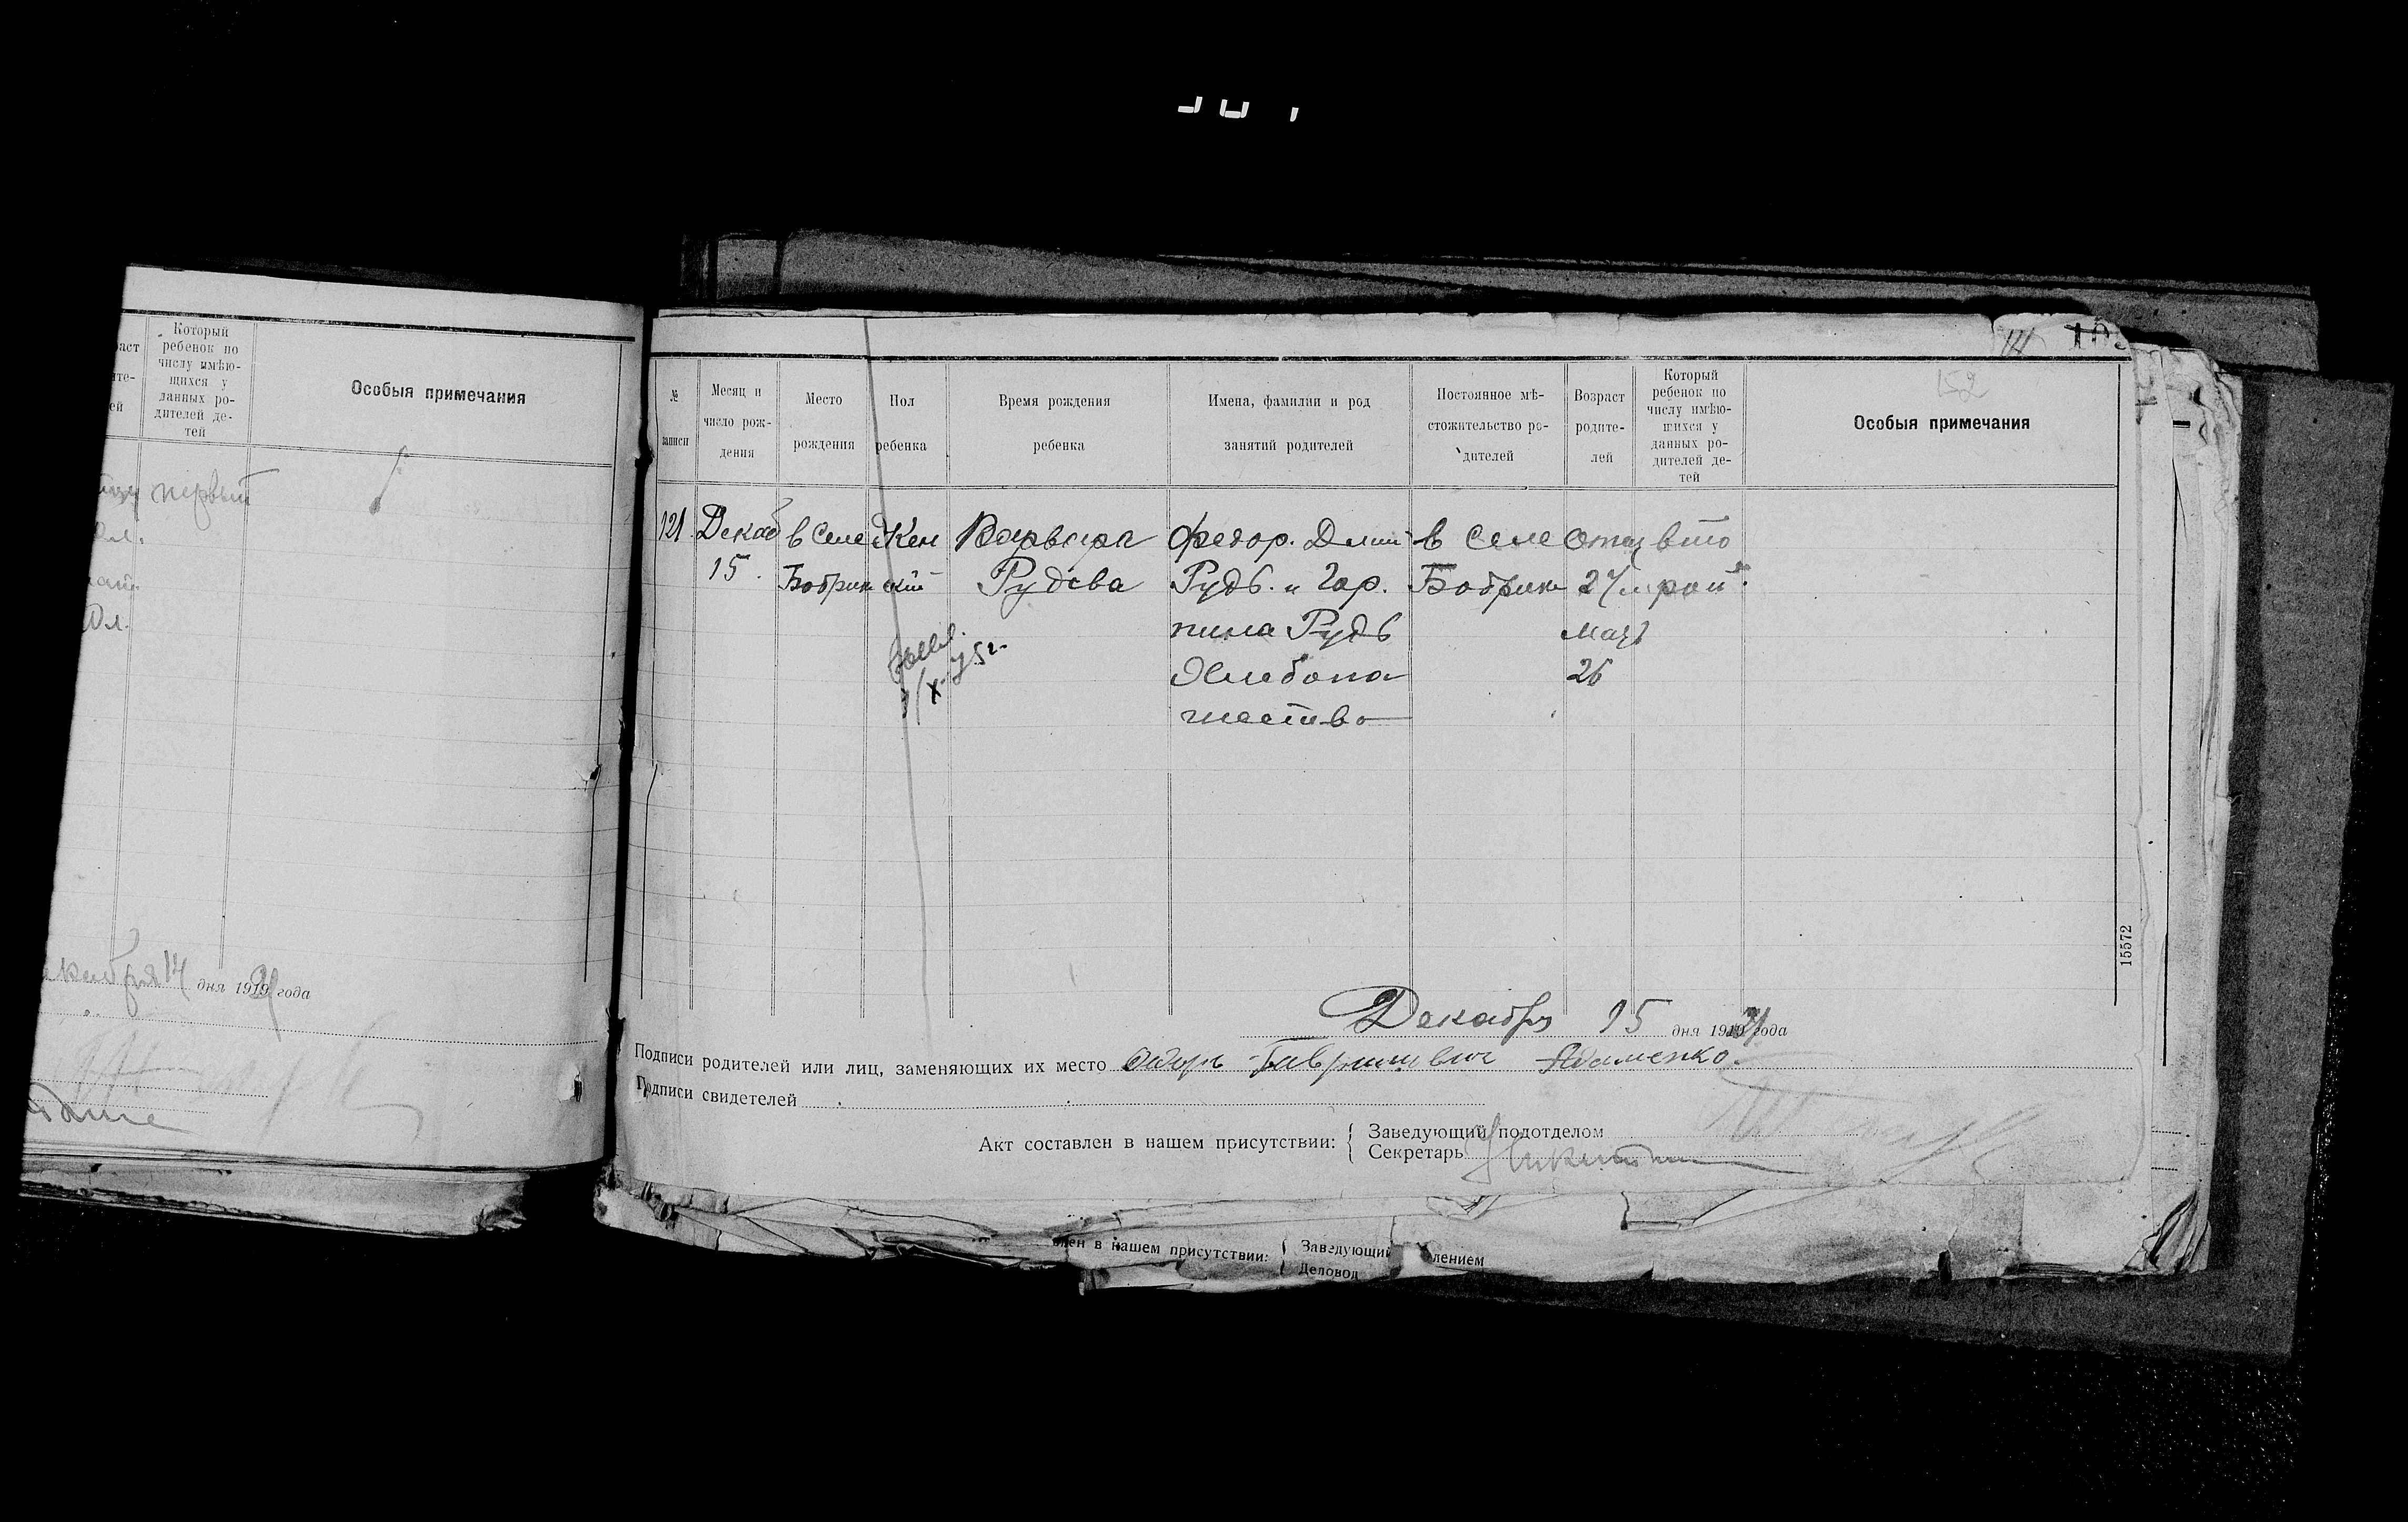 Который
ребенок по
числу имѣю-
щихся у
данных ро-
дителей де-
тей
Особыя примечания
первый
14 дня 1919 года
152
№
записи
Месяц и
число рож-
дения
Место
рождения
Пол
ребенка
Время рождения
ребенка
Имена, фамилии и род
занятий родителей
Постоянное мѣ-
стожительство ро-
дителей
Возраст
родите-
лей
Который
ребенок по
числу имѣю-
щихся у
данных ро-
дителей де-
тей
Особыя примечания
121 Декаб в селе Жен Варвара Федор. Дмит в селе отцу вто
15. Бобрик ский Рудева Рудь. и Гар. Бобрик 27 рой
пина Рудь мать
Хлебопа 26
шество
15572
Декабря 15 дня 1919 года
Подписи родителей или лиц, заменяющих их место Адаменко.
Подписи свидетелей
Акт составлен в нашем присутствии:
Заведующий подотделом
Секретарь
в нашем присутствии:
Заведующий
лением
Деловод